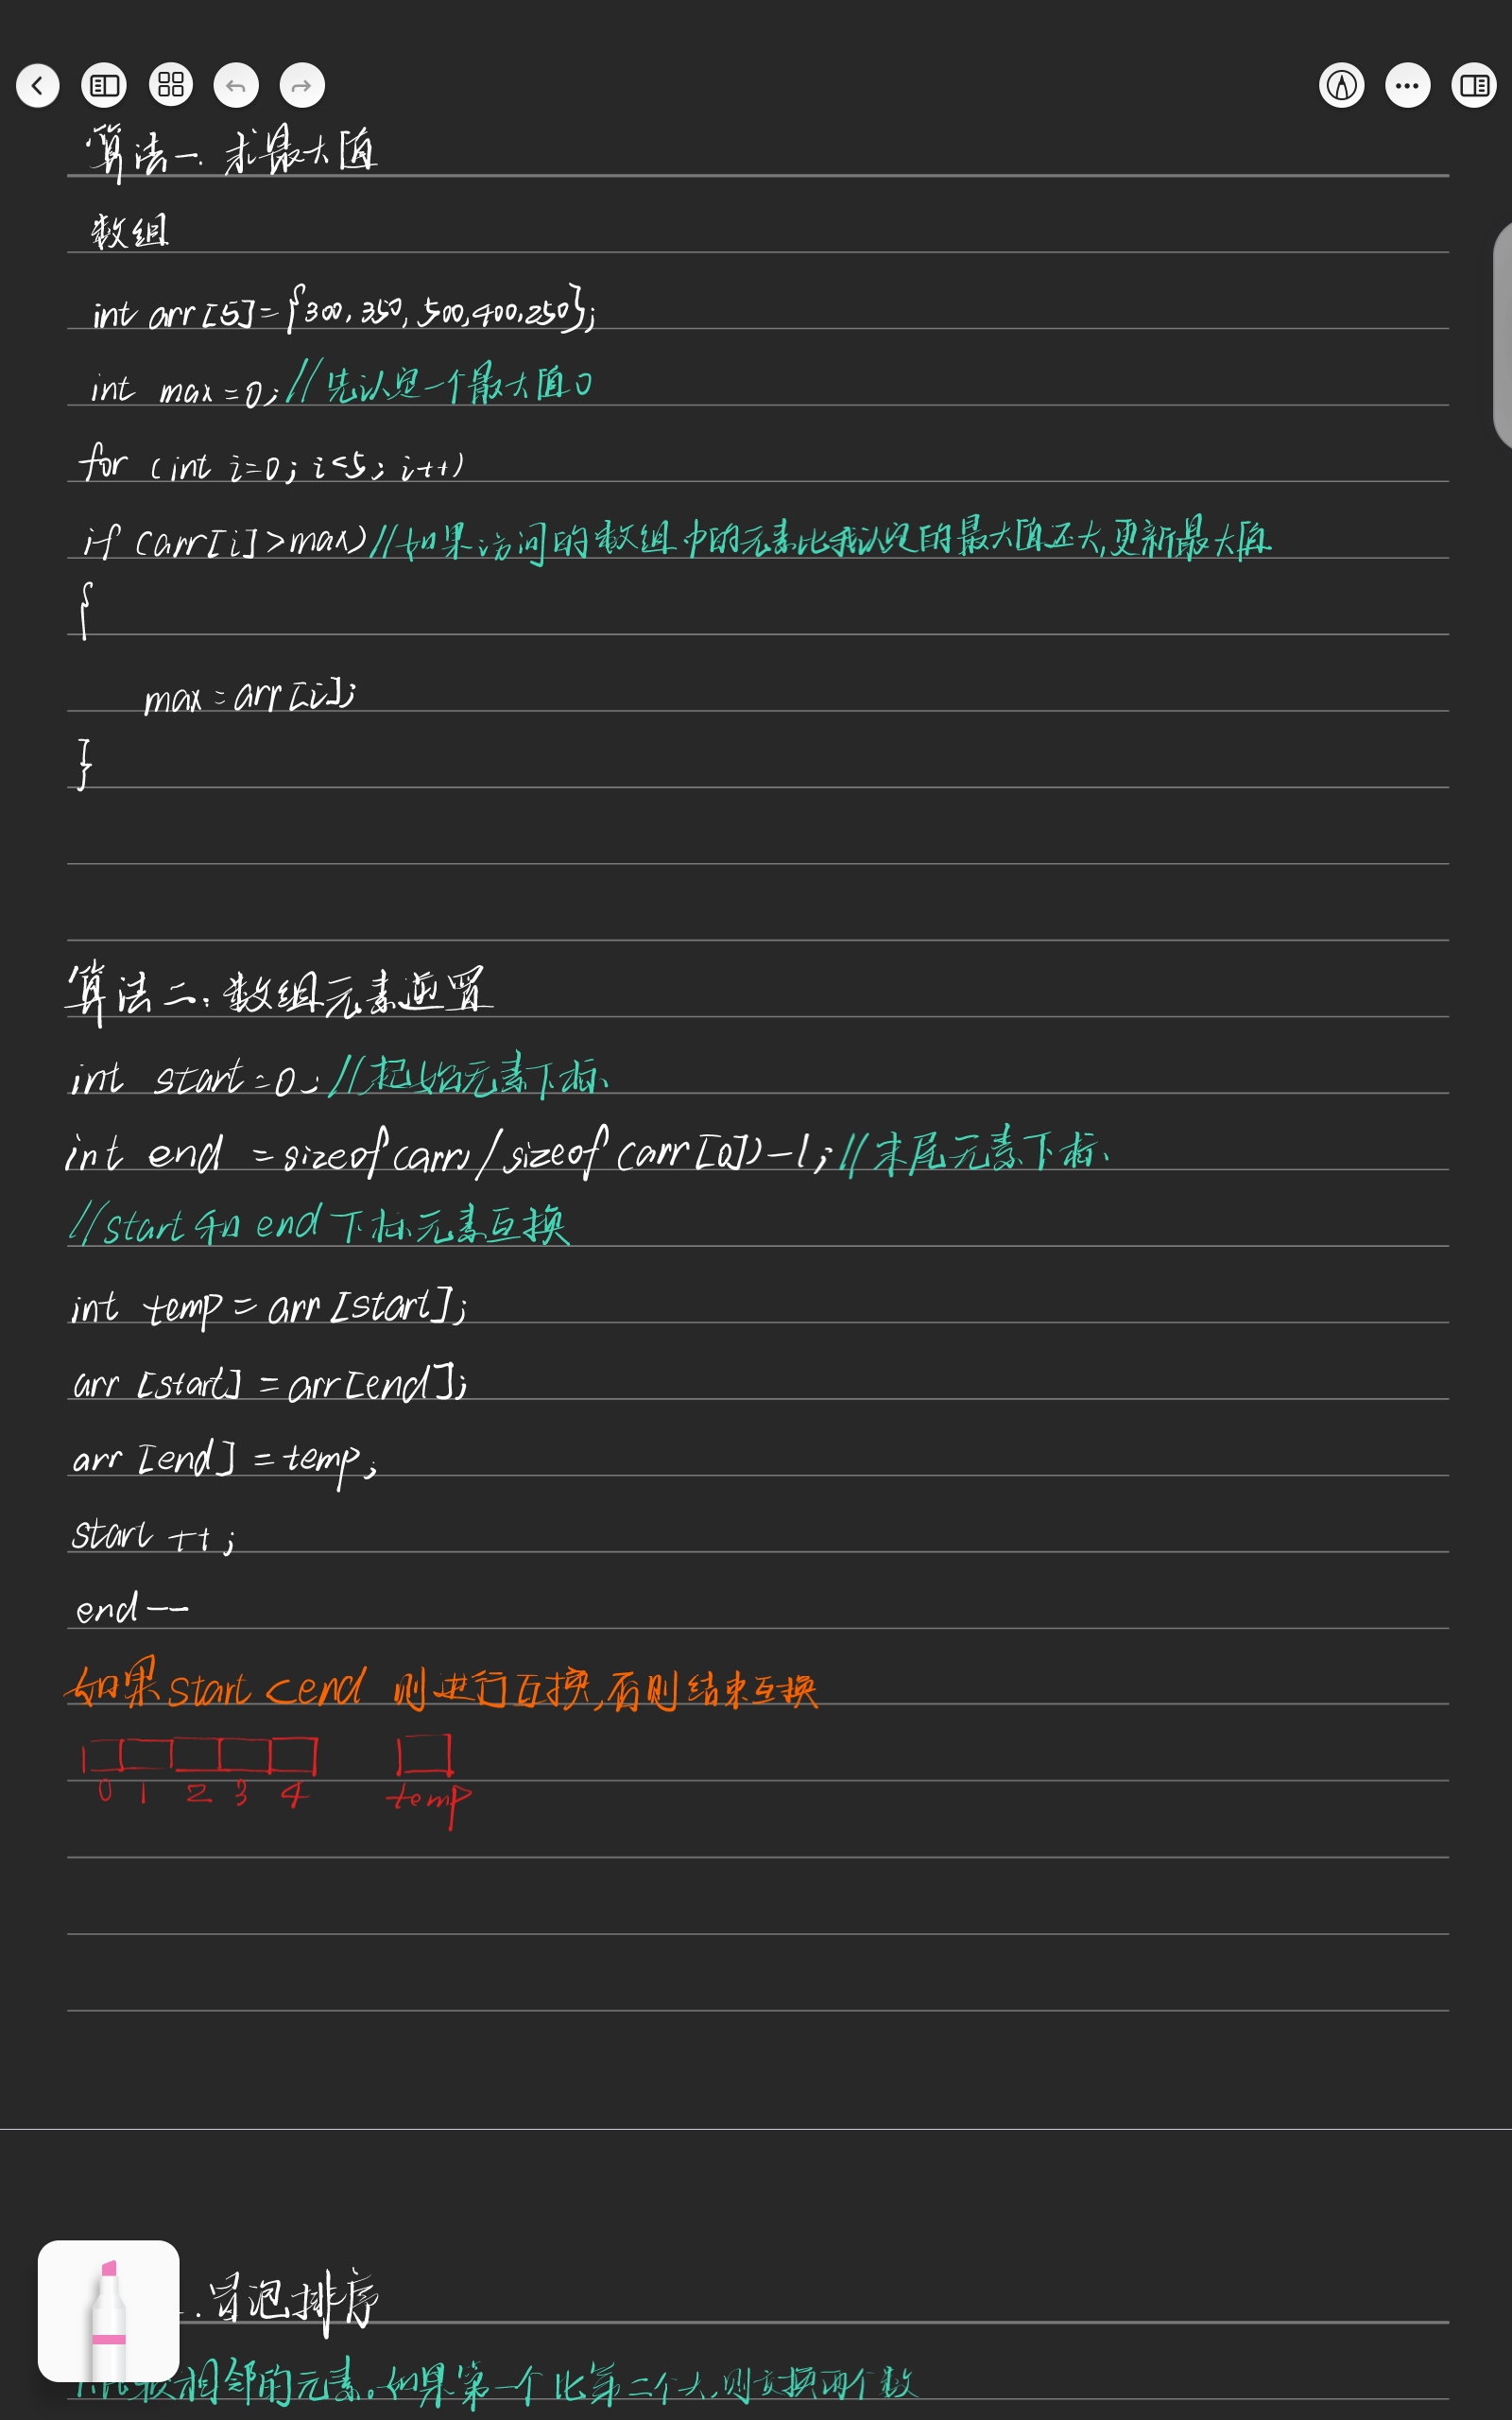 算法一. 求最大值
数组
int arr[5]={300,350,500,400,250};
int max=0;//先认定一个最大值0
for (int i=0;i<5;i++)
if (arr[i]>max)//如果访问的数组中的元素比我认定的最大值还大,更新最大值
{
max=arr[i];
}
算法二.数组元素逆置
int start=0;//起始元素下标
int end =sizeof(arr)/sizeof(arr[0])-1;//末尾元素下标
//start和end下标元素互换
int temp=arr[start];
arr[start]=arr[end];
arr[end]=temp;
start++;
end--
如果start<end 则进行互换,否则结束互换
0 1 2 3 4 temp
.冒泡排序
比较相邻的元素。如果第一个比第二个大,则交换两个数